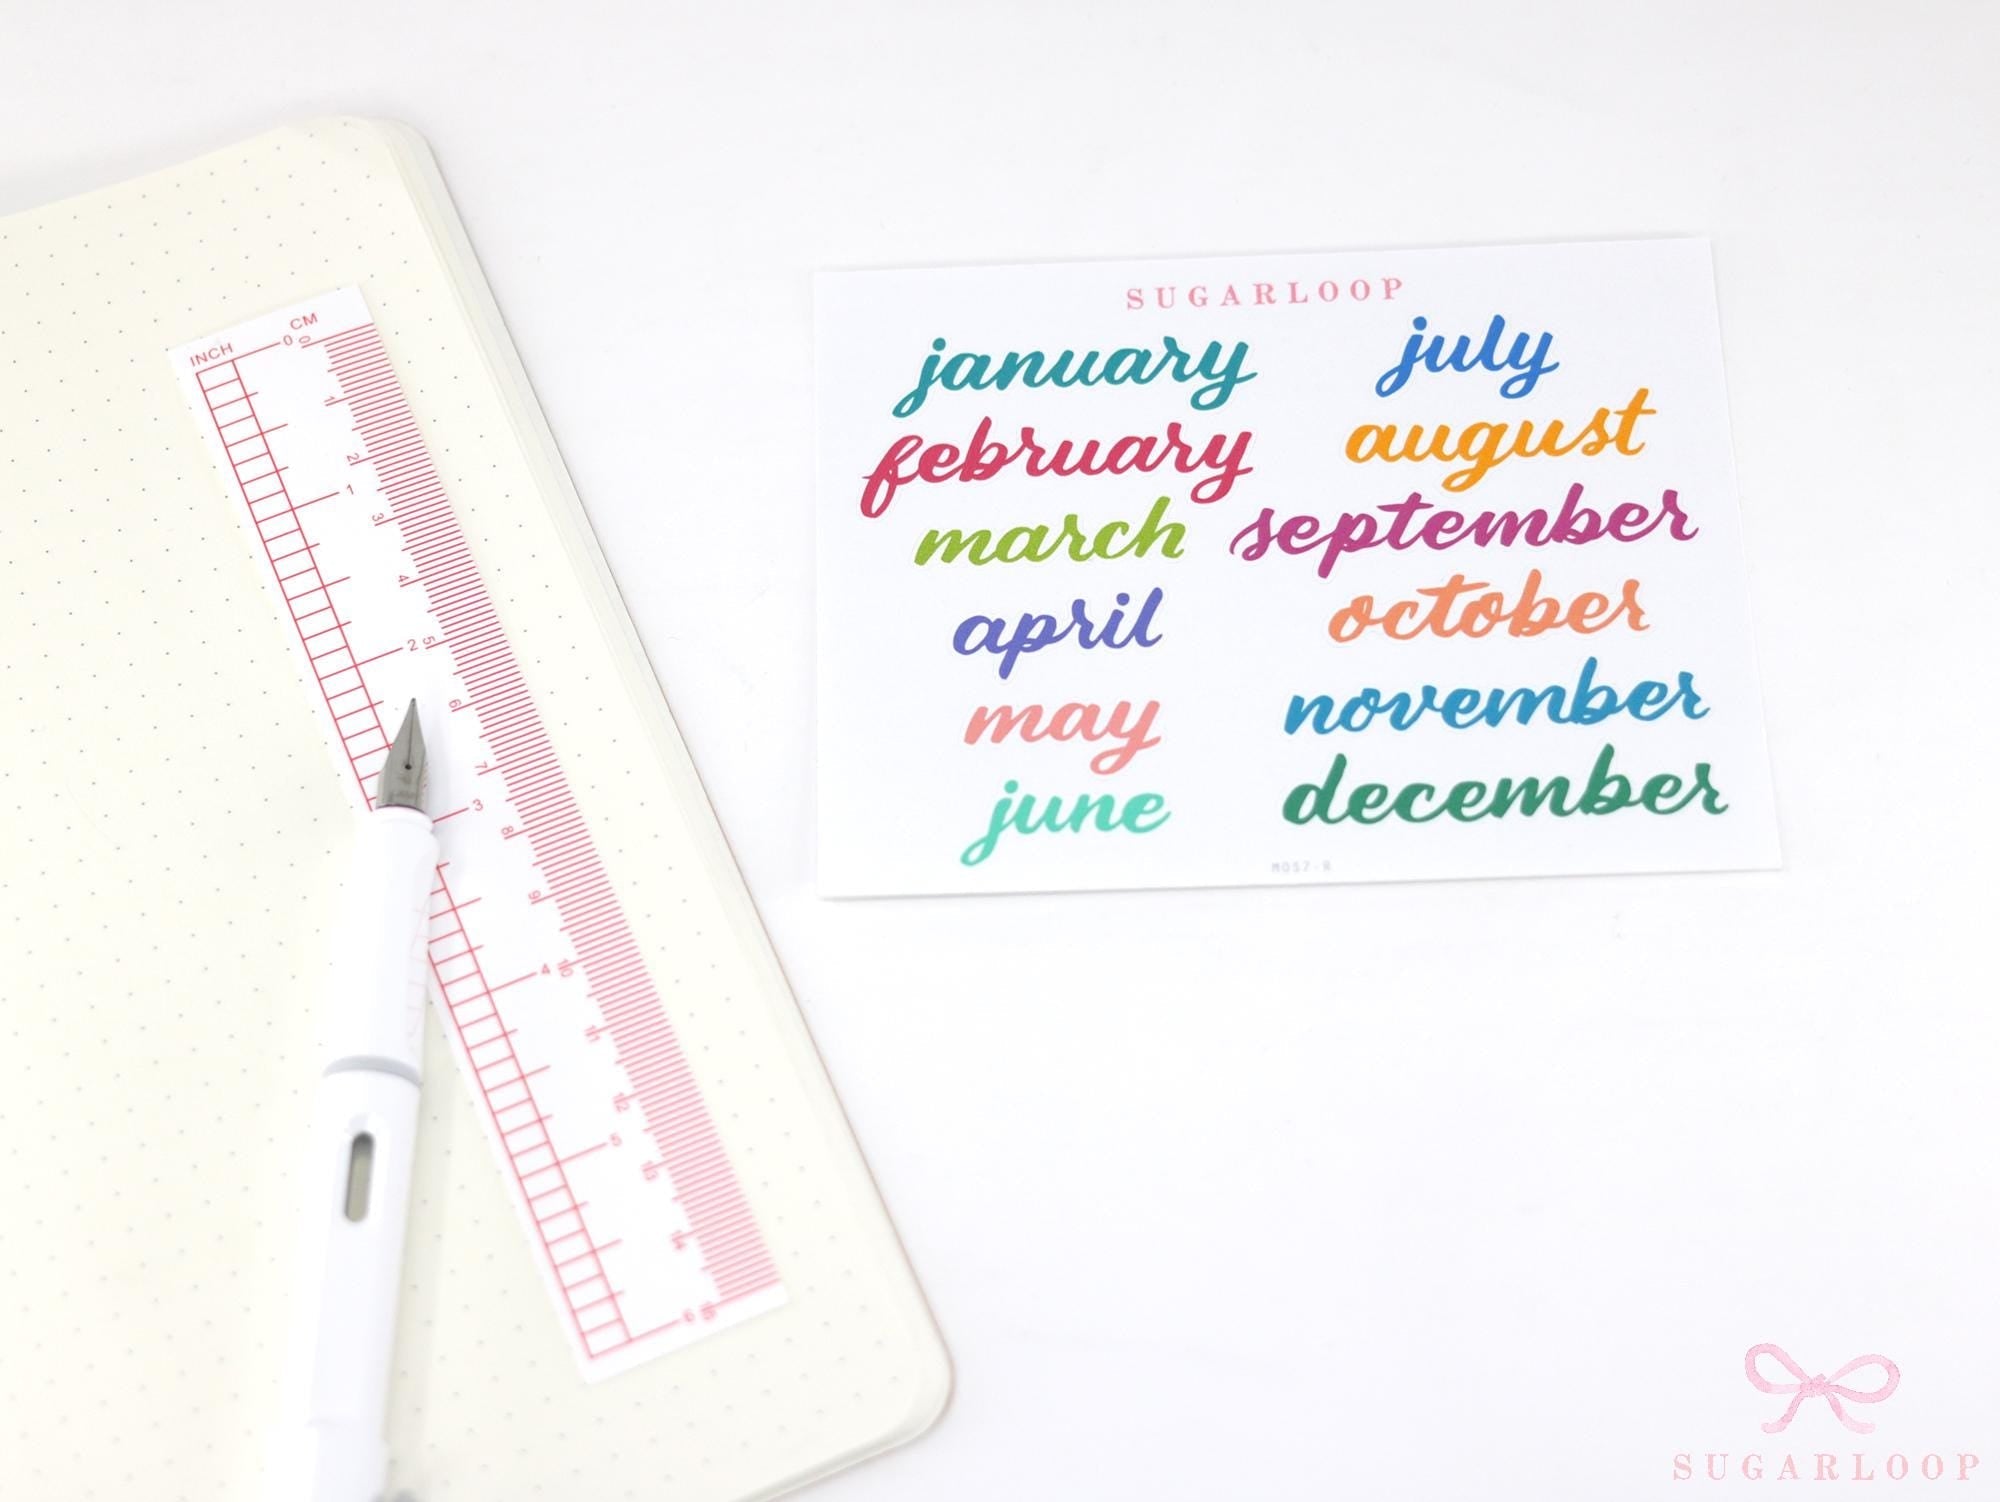 INCH
CM
0
0
1
2
1
3
4
2
5
6
7
3
8
9
4
10
11
12
5
13
14
6
15
SUGARLOOP
january
february
march
april
may
june
july
august
september
october
november
december
SUGARLOOP